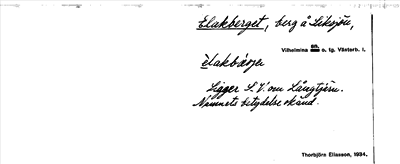 Elakberget, berg å Siksjön,
Vilhelmina sn. o. tg. Västerb. l.
Ligger S.V. om Långtjärn.
Namnets betydelse okänd.
Thorbjöre Eliasson, 1934.